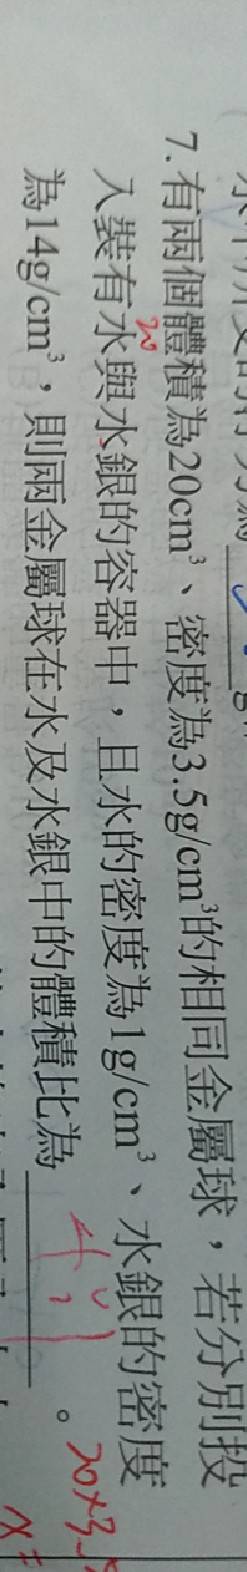 7.有兩個體積為20cm³、密度為3.5g/cm³的相同金屬球，若分別投
20
入裝有水與水銀的容器中，且水的密度為1g/cm³、水銀的密度
為14g/cm³，則兩金屬球在水及水銀中的體積比為＿＿＿＿。
4:1